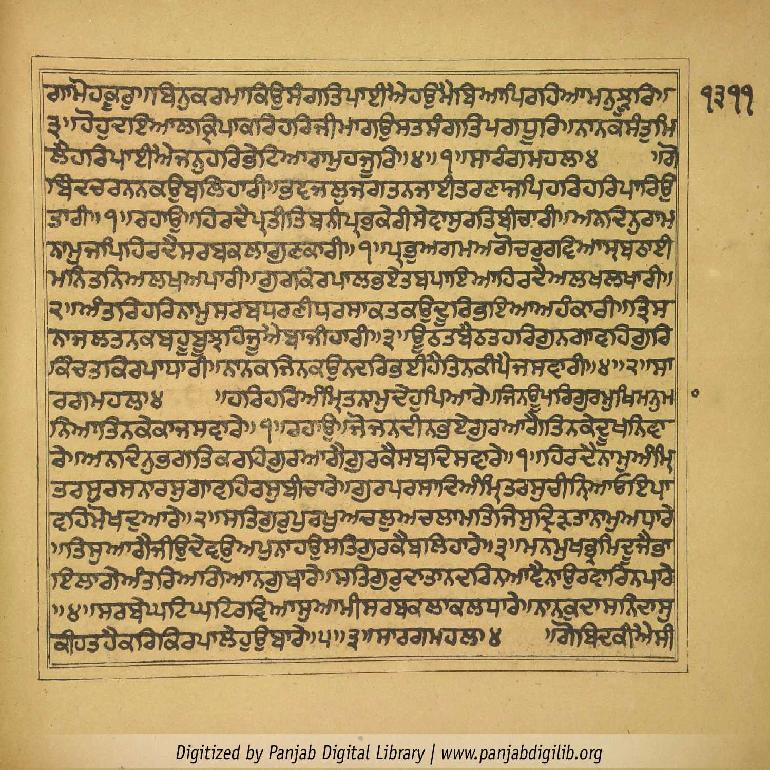 ਗਾਮੋਹਕੂਰੁ॥ਬਿਨੁਕਰਮਾਕਿਉਸੰਗਤਿਪਾਈਐਹਉਮੈਬਿਆਪਿਰਹਿਆਮਨੁਝੂਰਿ॥
੩॥ਹੋਹੁਦਇਆਲਕ੍ਰਿਪਾਕਰਿਹਰਿਜੀਮਾਗਉਸਤਸੰਗਤਿਪਗਧੂਰਿ॥ਨਾਨਕਸੰਤੁਮਿ
ਲੈਹਰਿਪਾਈਐਜਨੁਹਰਿਭੇਟਿਆਰਾਮੁਹਜੂਰਿ॥੪॥੧॥ਸਾਰੰਗਮਹਲਾ੪ ॥ਗੋ
ਬਿੰਦਚਰਨਨਕਉਬਲਿਹਾਰੀ॥ਭਵਜਲੁਜਗਤਨਜਾਈਤਰਣਾਜਪਿਹਰਿਹਰਿਪਾਰਿਉ
ਤਾਰੀ॥੧॥ਰਹਾਉ॥ਹਿਰਦੈਪ੍ਰਤੀਤਿਬਨੀਪ੍ਰਭਕੇਰੀਸੇਵਾਸੁਰਤਿਬੀਚਾਰੀ॥ਅਨਦਿਨੁਰਾਮ
ਨਾਮੁਜਪਿਹਿਰਦੈਸਰਬਕਲਾਗੁਣਕਾਰੀ॥੧॥ਪ੍ਰਭੁਅਗਮਅਗੋਚਰੁਰਵਿਆਸ੍ਰਬਠਾਈ
ਮਨਿਤਨਿਅਲਖਅਪਾਰੀ॥ਗੁਰਕਿਰਪਾਲਭਏਤਬਪਾਇਆਹਿਰਦੈਅਲਖੁਲਖਾਰੀ॥
੨॥ਅੰਤਰਿਹਰਿਨਾਮੁਸਰਬਧਰਣੀਧਰਸਾਕਤਕਉਦੂਰਿਭਇਆਅਹੰਕਾਰੀ॥ਤ੍ਰਿਸ
ਨਾਜਲਤਨਕਬਹੂਬੂਝਹਿਜੂਐਬਾਜੀਹਾਰੀ॥੩॥ਊਠਤਬੈਠਤਹਰਿਗੁਨਗਾਵਹਿਗੁਰਿ
ਕਿੰਚਤਕਿਰਪਾਧਾਰੀ॥ਨਾਨਕਜਿਨਕਉਨਦਰਿਭਈਹੈਤਿਨਕੀਪੈਜਸਵਾਰੀ॥੪॥੨॥ਸਾ
ਰਗਮਹਲਾ੪ ॥ਹਰਿਹਰਿਅੰਮ੍ਰਿਤਨਾਮੁਦੇਹੁਪਿਆਰੇ॥ਜਿਨਊਪਰਿਗੁਰਮੁਖਿਮਨੁਮਾ
ਨਿਆਤਿਨਕੇਕਾਜਸਵਾਰੇ॥੧॥ਰਹਾਉ॥ਜੋਜਨਦੀਨਭਏਗੁਰਆਗੈਤਿਨਕੇਦੂਖਨਿਵਾ
ਰੇ॥ਅਨਦਿਨੁਭਗਤਿਕਰਹਿਗੁਰਆਗੈਗੁਰਕੈਸਬਦਿਸਵਾਰੇ॥੧॥ਹਿਰਦੈਨਾਮੁਅੰਮ੍ਰਿ
ਤਰਸੁਰਸਨਾਰਸੁਗਾਵਹਿਰਸੁਬੀਚਾਰੇ॥ਗੁਰਪਰਸਾਦਿਅੰਮ੍ਰਿਤਰਸੁਚੀਨਿਆਓਇਪਾ
ਵਹਿਮੋਖਦੁਆਰੇ॥੨॥ਸਤਿਗੁਰੁਪੁਰਖੁਅਚਲੁਅਚਲਾਮਤਿਜਿਸੁਦ੍ਰਿੜਤਾਨਾਮੁਅਧਾਰੇ
॥ਤਿਸੁਆਗੈਜੀਉਦੇਵਉਅਪੁਨਾਹਉਸਤਿਗੁਰਕੈਬਲਿਹਾਰੇ॥੩॥ਮਨਮੁਖਭ੍ਰਮਿਦੂਜੈਭਾ
ਇਲਾਗੇਅੰਤਰਿਅਗਿਆਨਗੁਬਾਰੇ॥ਸਤਿਗੁਰੁਦਾਤਾਨਦਰਿਨਆਵੈਨਾਉਰਵਾਰਿਨਪਾਰੇ
॥੪॥ਸਰਬੇਘਟਿਘਟਿਰਵਿਆਸੁਆਮੀਸਰਬਕਲਾਕਲਧਾਰੇ॥ਨਾਨਕੁਦਾਸਨਿਦਾਸੁ
ਕੀਹਤਹੈਕਰਿਕਿਰਪਾਲੇਹੁਉਬਾਰੇ॥੫॥੩॥ਸਾਰਗਮਹਲਾ੪ ॥ਗੋਬਿਦਕੀਐਸੀ
੧੩੧੧
Digitized by Panjab Digital Library | www.panjabdigilib.org